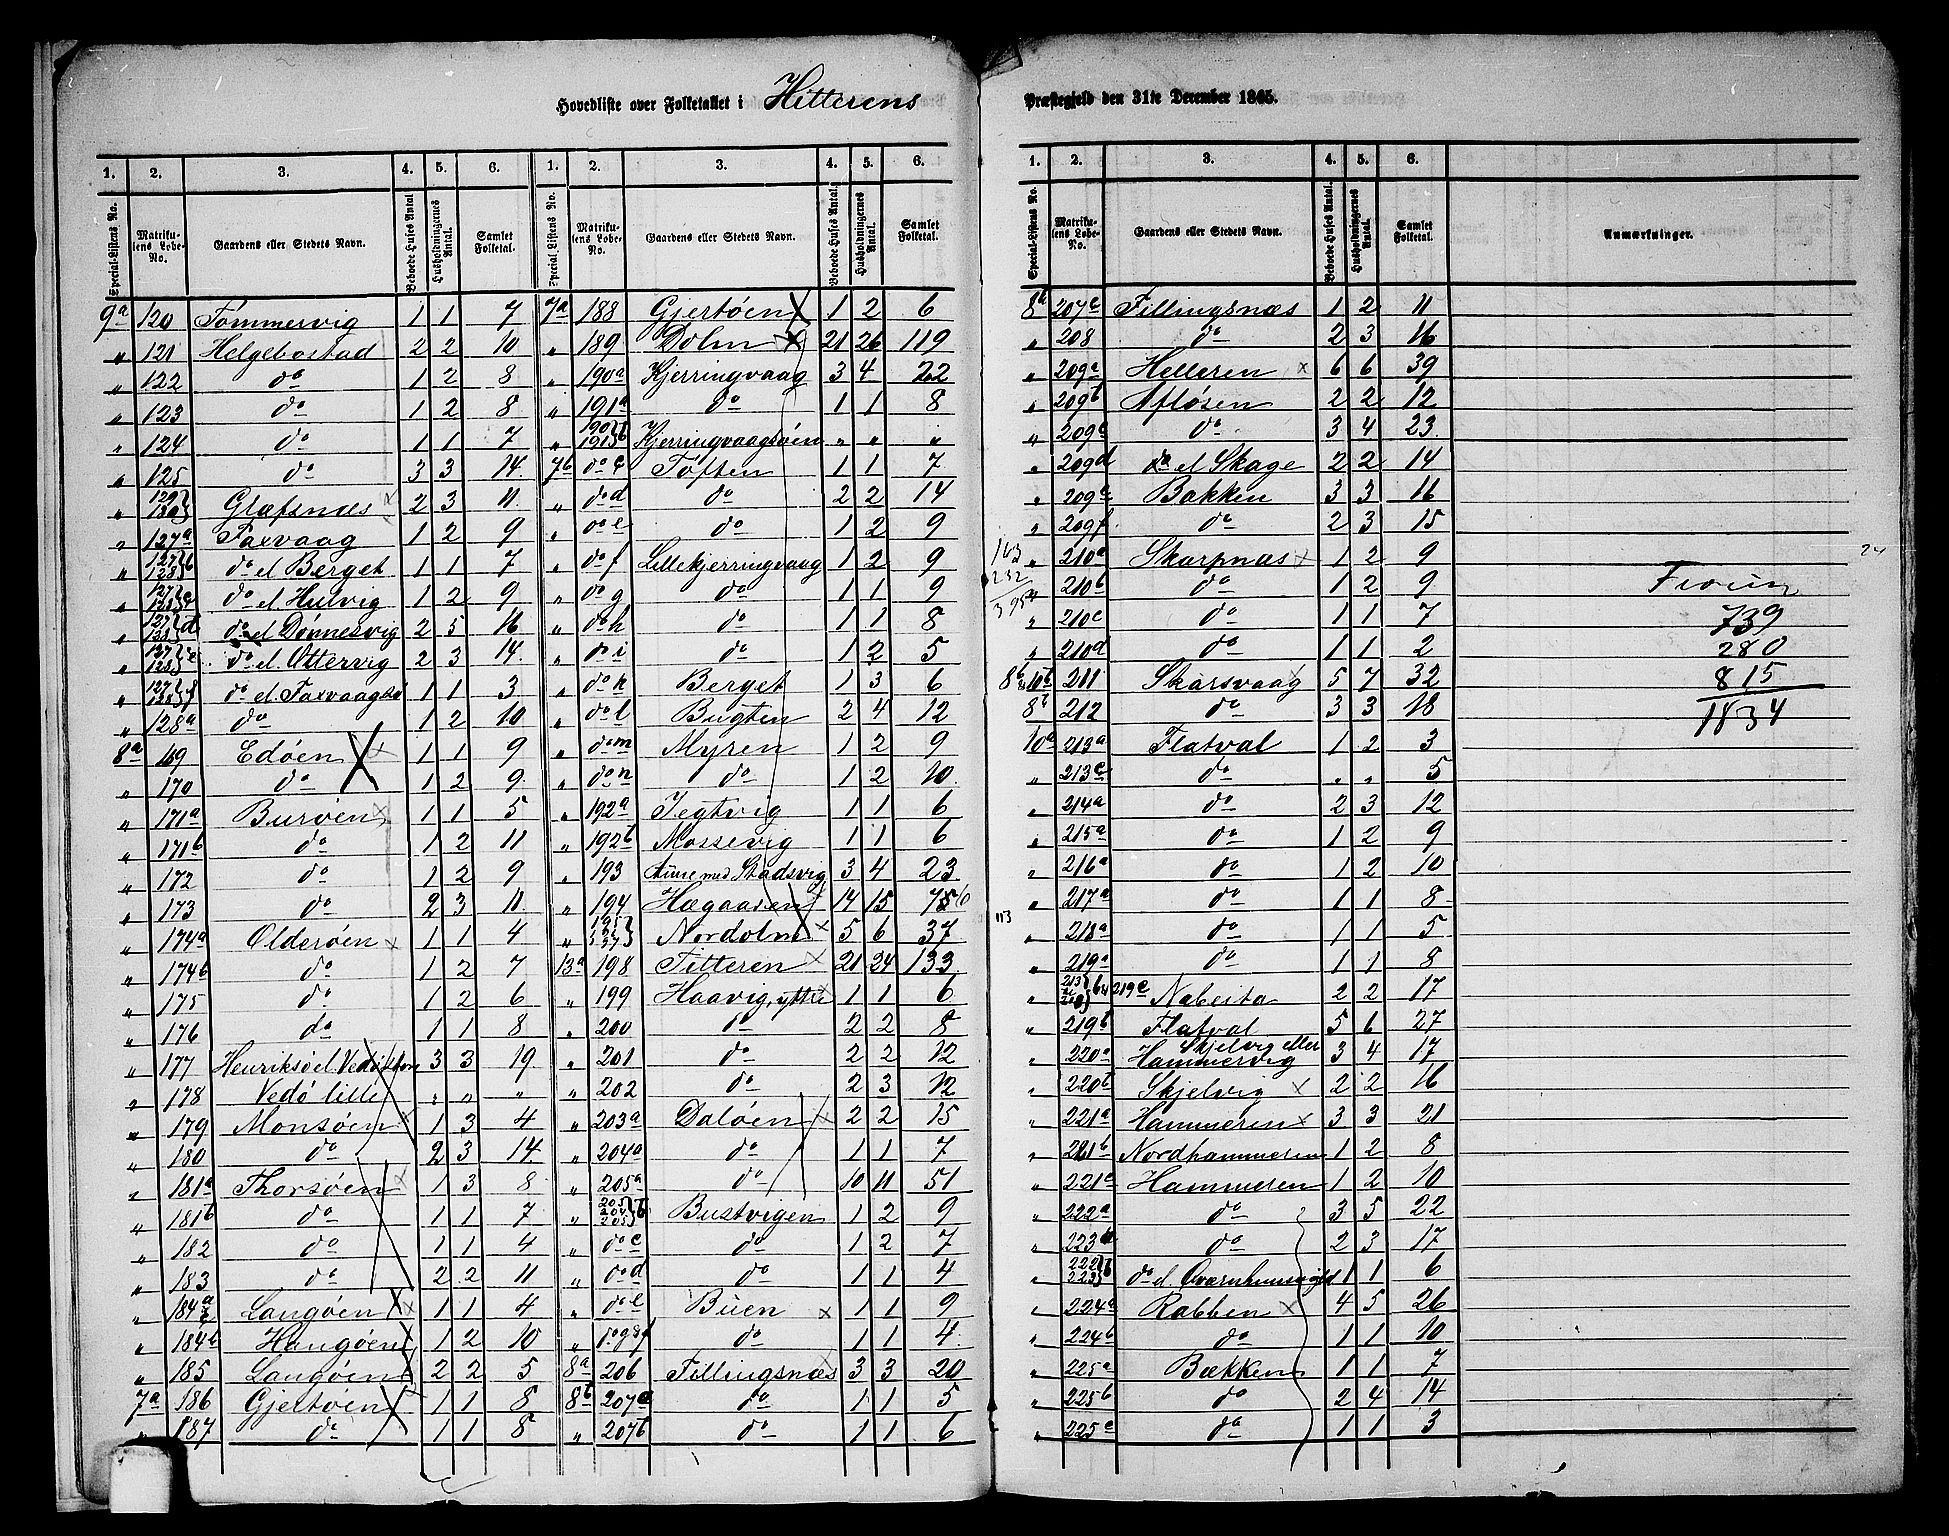 Hovedliste over Folketallet i Hitterens Præstegjeld den 31te December 1865.
1. 2. 3. 4. 5. 6. 1. 2. 3. 4. 5. 6.
Special-Listens No. Matrikulens Løbe-No. Gaardens eller Stedets Navn. Beboede Huses Antal. Husholdningernes Antal. Samlet Folketal. Special-Listens No. Matrikulens Løbe-No. Gaardens eller Stedets Navn. Beboede Huses Antal. Husholdningernes Antal. Samlet Folketal.
9a 120 Tømmervig 1 1 7
" 121 Helgebostad 2 2 10
" 122 do 1 2 8
" 123 do 1 2 8
" 124 do 1 1 7
" 125 do 3 3 14
" 129 130 Græfsnæs 2 3 11
" 127a Faxvaag 1 2 9
" 127 128 b do el Berget 1 1 7
" 127 128 c do el Hulvig 1 2 9
" 127 128 d do el Dønnesvig 2 5 16
" 127 128 e do el Ottervig 2 3 14
" 127 128 f do el Faxvaagsø 1 1 3
" 128a do 1 2 10
8a 169 Edøen 1 1 9
" 170 do 1 2 9
" 171a Burøen 1 1 5
" 171b do 1 2 11
" 172 do 1 2 9
" 173 do 2 3 11
" 174a Olderøen 1 1 4
" 174b do 1 2 7
" 175 do 1 2 6
" 176 do 1 1 8
" 177 Henriksø el Vedø store 3 3 19
" 178 Vedø lille " " "
" 179 Monsøen 1 3 4
" 180 do 2 3 14
" 181a Thorsøen 1 3 8
" 181b do 1 1 7
" 182 do 1 1 4
" 183 do 2 2 11
" 184a c Langøen 1 1 4
" 184b Hangøen 1 2 10
" 185 Langøen 2 2 5
7a 186 Gjertøen 1 1 8
" 187 do 1 1 8
7a 188 Gjertøen 1 2 6
" 189 Dolm 21 26 119
" 190a Kjerringvaag 3 4 22
" 191a do 1 1 8
" 190 191 b Kjerringvaagsøen " " "
7b do c Toften 1 1 7
" do d do 2 2 14
" do e do 1 2 9
" do f Lillekjerringvaag 1 2 9
" do g do 1 1 9
" do h do 1 1 8
" do i do 1 2 5
" do k Berget 1 3 6
" do l Bugten 2 4 12
" do m Myren 1 2 9
" do n do 1 2 10
" 192a Jegtvig 1 1 6
" 192b Mossevig 1 1 6
" 193 Aune med Stadsvig 3 4 23
" 194 Hægaasen 14 15 756
" Nordolm 5 6 37
13a 198 Titteren 21 24 133
" 199 Haavig, ytre 1 1 6
" 200 do 2 2 8
" 201 do 2 2 12
" 202 do 2 3 12
" 203a Daløen 2 2 15
" 204a do 1 1 7
" 205a do 10 11 51
" 203 204 205 b Bustvigen 1 2 9
" do c do 1 2 7
" do d do 1 1 4
" do e Buen 1 1 9
" do g & f do 1 1 4
8a 206 Fillingsnæs 3 3 20
8b 207a do 1 1 5
" 207b do 1 1 6
1. 2. 3. 4. 5. 6.
Special-Listens No. Matrikulens Løbe-No. Gaardens eller Stedets Navn. Beboede Huses Antal. Husholdningernes Antal. Samlet Folketal. Anmærkninger.
8b 207c Fillingsnæs 1 2 11
" 208 do 2 3 16
" 209a Helleren 6 6 39
" 209b Afløsen 2 2 12
" 209c do 3 4 23
" 209d do el Skage 2 2 14
" 209e Bakken 3 3 16
" 209f do 2 3 15
" 210a Skarpnæs 1 2 9
" 210b do 1 2 9
" 210c do 1 1 7
" 210d do 1 1 2
8b & 10b 211 Skarsvaag 5 7 32
8b 212 do 3 3 18
10a 213a Flatval 1 2 3
" 213c do " " 5
" 214a do 2 3 12
" 215a do 1 2 9
" 216a do 1 2 10
" 217a do 1 1 8
" 218a do 1 1 5
" 219a do 1 1 8
" 219c Nabeita 2 2 17
" 219b Flatval 5 6 27
" 220a Skjelvig eller Hammervig 3 4 17
" 220b Skjelvig 2 2 16
" 221a Hammeren 3 3 21
" 221b Nordhammeren 1 2 8
" 221c Hammeren 1 2 10
" 222a do 3 5 22
" 223a do 2 3 17
" 222 223 b do el Qværnhuusvold 1 1 6
" 224a Rabben 4 5 26
" 224b do 1 1 10
" 225a Bækken 1 1 7
" 225b do 2 4 14
" 225c do 1 1 3
163
232
395
113
24
739
280
815
1834